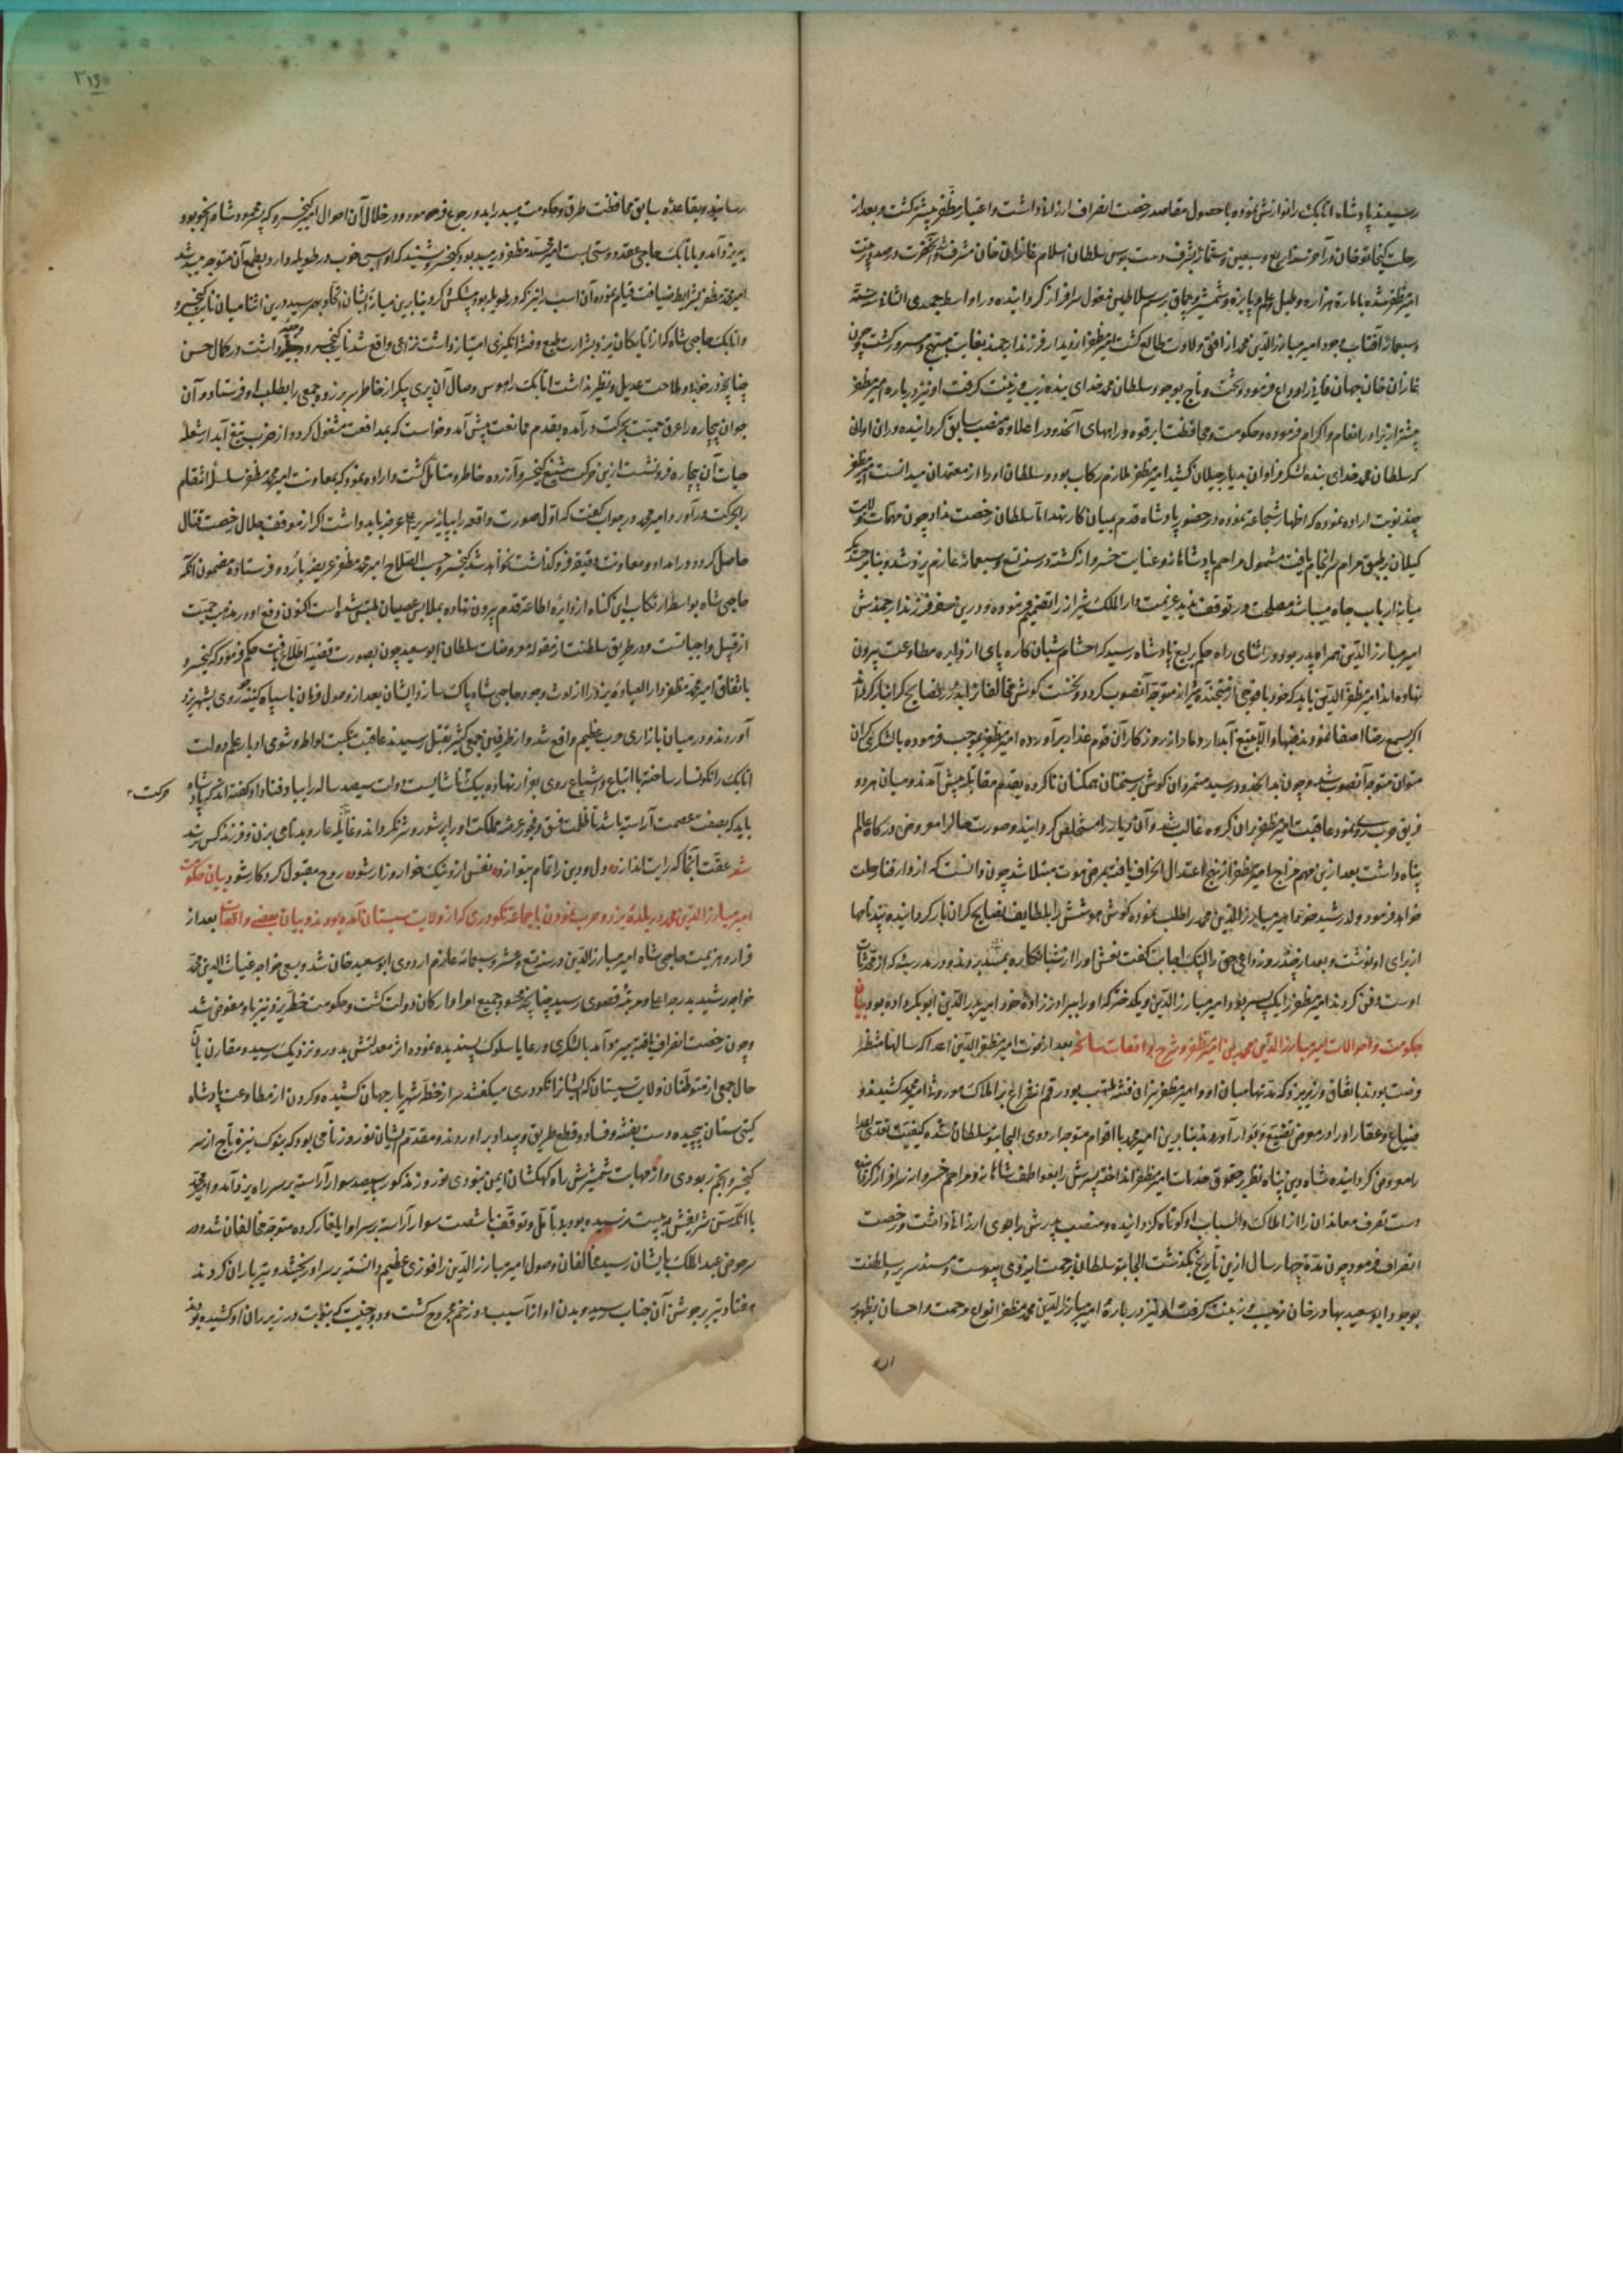 رسیدند پادشاه اتابک را نوازش نموده با حصول مقاصد رخصت انصراف ارزانی داشت و اعتبار مظفر بیشتر گشت و بعد از
رحلت کیخاتو خان در آخر سنه اربع و تسعین و ستمائه بشرف دست بوس سلطان اسلام غازان خان مشرف شد
امیر مظفر شده بامارت هزاره و طبل و علم و پایزه و شمشیر و چماق برسم سلاطین مغول سرافراز گردانیده در اواسط جمادی الثانی سنه
و سبعمائه آفتاب وجود امیر مبارزالدین محمد از افق ولادت طالع گشت امیر مظفر از دیدار فرزند ارجمند بغایت مبتهج و مسرور گشت و چون
غازان خان جهان فانی را وداع فرمود و تخت و تاج بوجود سلطان محمد خدای بنده زیب و زینت گرفت او نیز درباره امیر مظفر
بیشتر از برادر انعام و اکرام فرموده و حکومت و محافظت ابرقوه و راههای آنحدود را علاوه منصب سابق گردانیده در آن اوان
که سلطان محمد خدای بنده لشکر فراوان بدیار جیلان کشید امیر مظفر ملازم رکاب بود و سلطان او را از معتمدان میدانست امیر مظفر
چند نوبت اراده نموده که اظهار شجاعت نموده در حضور پادشاه قدم بمیان کارزار نهد اما سلطان رخصت نداد چون مهمات ولایت
گیلان بر طبق مرام سرانجام یافت مشمول مراحم پادشاهانه و عنایت خسروانه گشته در سنه تسع و سبعمائه عازم یزد شد و بنا بر
میانه ارباب جاه میباشد مصلحت در توقف ندید عزیمت دارالملک شیراز را تصمیم نموده و درین سفر فرزند ارجمندش
امیر مبارزالدین همراه پدر بود در اثنای راه حکم یرلیغ پادشاه رسید که احشام شبان کاره پای از دایره مطاوعت بیرون
نهاده اند امیر مظفرالدین باید که خود با فوجی از شیراز متوجه آنصوب گردد و نخست گوش مخالفان را بدرر نصایح گرانبار گرداند
اگر بسمع رضا اصغا نمودند فبها و الا بتیغ آبدار دمار از روزگار آن قوم غدار برآورده امیر مظفر بموجب فرموده با لشکری گران
متوجه آنصوب شد و چون بدانحدود رسید متمردان گوش بسخنان همکنان ناکرده بقدم مقابله پیش آمدند و میان هر دو
فریق حرب روی نمود و عاقبت امیر مظفر بران گروه غالب شد و آن دیار را مستخلص گردانید و صورت حال را معروض درگاه عالم
پناه داشت بعد ازین مهم مزاج امیر مظفر از منهج اعتدال انحراف یافته بمرض موت مبتلا شد چون دانست که از دار فنا رحلت
خواهد فرمود ولد رشید خود امیر مبارزالدین محمد را طلب نموده گوش هوشش را بلطایف نصایح گران بار گردانیده پندنامها
از برای او نوشت و بعد از چند روز داعی حق را لبیک اجابت گفت نعش او را از شبانکاره بمیبد بردند و در مدرسه که از محدثات
اوست دفن کردند امیر مظفر را یک پسر بود امیر مبارزالدین و یک دختر که او را ببرادرزاده خود امیر بدرالدین ابوبکر داده بود بیان
حکومت و احوالات امیر مبارزالدین محمد بن امیر مظفر و شرح واقعات سانحه بعد از فوت امیر مظفرالدین اعدا که سالها منتظر
فرصت بودند باتفاق وزیر یزد که مدتها میان او و امیر مظفر نیران فتنه ملتهب بود رقم انتزاع بر املاک موروثی امیر محمد کشیدند و
ضیاع و عقار او را در معرض تضییع و بوار آوردند بنابرین امیر محمد با اقوام متوجه اردوی الجایتو سلطان شده کیفیت تعدی اعدا
را معروض گردانید شاه دین پناه نظر بر حقوق خدمات امیر مظفر انداخته پسرش را بعواطف شاهانه و مراحم خسروانه سرافراز کرد
دست تصرف معاندان را از املاک و اسباب او کوتاه گردانیده و منصب پدرش را بوی ارزانی داشت و رخصت
انصراف فرمود چون مدت چهار سال ازین تاریخ بگذشت الجایتو سلطان برحمت ایزدی پیوست و مسند سریر سلطنت
بوجود ابوسعید بهادر خان زیب و زینت گرفت او نیز درباره امیر مبارزالدین محمد مظفر انواع مرحمت و احسان بظهور
رسانید و بقاعده سابق محافظت طرق و حکومت میبد را بدو رجوع فرموده و در خلال آن احوال امیر کیخسرو که پسر محمود شاه اینجو بود
به یزد آمد و با اتابک حاجی عقد دوستی بست امیر محمد مظفر در میبد بود کیخسرو شنید که او اسبی خوب در طویله دارد بطمع آن متوجه میبد شد
امیر محمد مظفر بشرایط ضیافت قیام نموده آن اسب را نیز که در طویله بود پیشکش کرد بنابرین میانه ایشان اتحاد بهم رسید درین اثنا میان نایب کیخسرو
و اتابک حاجی شاه که از اتابکان یزد بشرارت طبع و فتنه انگیزی امتیاز داشت نزاعی واقع شد نایب کیخسرو داشت در کمال حسن
چنانچه در خوبی و ملاحت عدیل و نظیر نداشت اتابک را هوس وصال آن پری پیکر از خاطر سر بر زده جمعی را بطلب او فرستاد و آن
جوان بیچاره را عرق حمیت بحرکت درآمده بقدم ممانعت پیش آمد و خواست که بمدافعت مشغول گردد از ضرب تیغ آبدار شعله
حیات آن بیچاره فرو نشست ازین حرکت شنیع کیخسرو آزرده خاطر و متأمل گشت و اراده نمود که بمعاونت امیر محمد مظفر سلسله انتقام
را بحرکت درآورد امیر محمد در جواب گفت که اول صورت واقعه را بپایه سریر اعلی عرضه باید داشت اگر از موقف جلال رخصت قتال
حاصل گردد در امداد و معاونت دقیقه فروگذاشت نخواهد شد کیخسرو حسب الصلاح امیر محمد مظفر عریضه باردو فرستاد مضمون آنکه
حاجی شاه بواسطه ارتکاب این گناه از دایره اطاعت قدم بیرون نهاده بملابس عصیان ملتبس شده است اکنون دفع او در مذهب حمیت
از قبیل واجبانست و در طریق سلطنت از مقوله مفروضات سلطان ابوسعید چون بصورت قضیه اطلاع یافت حکم فرمود که کیخسرو
باتفاق امیر محمد مظفر دارالعباده یزد را از لوث وجود حاجی شاه پاک سازد ایشان بعد از وصول فرمان با سپاه کینه خواه روی بشهر یزد
آوردند و در میان بازار حرب عظیم واقع شد و از طرفین جمعی کثیر بقتل رسیدند عاقبت نکبت لواط و شومی ادبار علم دولت
اتابک را نگونسار ساخته با اتباع و اشیاع روی بفرار نهاده بیک ناشایست دولت سیصد ساله را بباد فنا داد و گفته اند که پادشاه
حرکت
باید که بصفت عصمت آراسته باشد تا ظلمت فسق و فجور عرصه مملکت او را پرشور و شر نگرداند و غایله عار و بدنامی بزن و فرزند کس نرسد
شعر عفت آنجا که رایت اندازد دل و دین را تمام بنوازد نفس از و نیک خوار و زار شود روح مقبول کردگار شود بیان حکومت
امیر مبارزالدین محمد در بلده یزد و حرب نمودن با جماعت نکودری که از ولایت سیستان آمده بودند و بیان بعضی واقعات بعد از
فرار و هزیمت حاجی شاه امیر مبارزالدین در سنه تسع و عشر و سبعمائه عازم اردوی ابوسعید خان شد و بسعی خواجه غیاث الدین محمد
خواجه رشید بدرجه اعلی و مرتبه قصوی رسید چنانچه محسود جمیع امرا و ارکان دولت گشت و حکومت خطه یزد نیز باو مفوض شد
و چون رخصت انصراف یافته بیزد آمد با لشکری و رعایا سلوک پسندیده نموده اثر معدلتش بدور و نزدیک رسید و مقارن آن
حال جمعی از متوطنان ولایت سیستان که ایشانرا نکودری میگفتند سر از خط شهریار جهان کشیده و گردن از مطاوعت پادشاه
گیتی ستان پیچیده دست بفتنه و فساد و قطع طریق و بیداد برآوردند و مقدم ایشان نوروز نامی بود که بنوک نیزه تاج از سر
کیخسرو انجم ربودی و از مهابت شمشیرش راه کهکشان ایمن نبودی نوروز مذکور با سیصد سوار آراسته بر سر راه یزد آمد و امیر محمد
با آنکه سن شریفش به بیست نرسیده بود بی تأمل و توقف با شصت سوار آراسته بر سر او ایلغار کرده متوجه مخالفان شد و در
سر حوض عبدالملک بایشان رسید مخالفان وصول امیر مبارزالدین را فوزی عظیم دانسته بر سر او ریختند و تیرباران کردند
هفتاد تیر بر جوشن آن جناب رسید و بدن او از آسیب دو زخم مجروح گشت و دو جنیبت که بنوبت در زیر ران او کشیده بودند